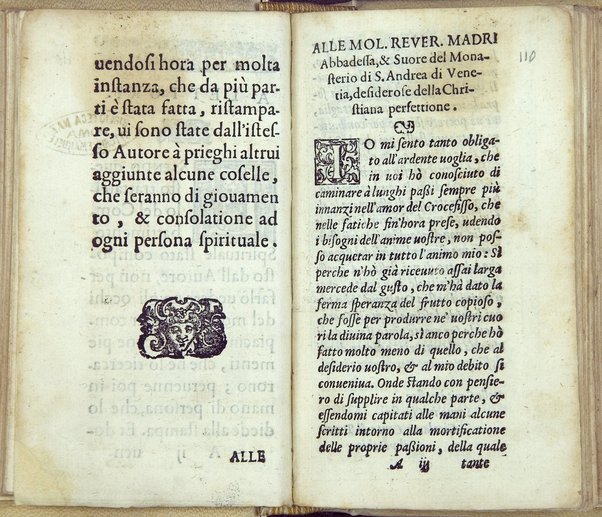 uendosi hora per molta
instanza, che da più par-
ti è stata fatta, ristampa-
re, ui sono state dall'istes-
so Autore à prieghi altrui
aggiunte alcune coselle,
che seranno di giouamen
to, & consolatione ad
ogni persona spirituale.
ALLE
ALLE MOL. REVER. MADRI
Abbadessa, & Suore del Mona-
sterio di S. Andrea di Vene-
tia, desiderose della Chri-
stiana perfettione.
110
IO mi sento tanto obliga
to all'ardente uoglia, che
in uoi hò conosciuto di
caminare à lunghi passi sempre più
innanzi nell'amor del Crocefisso, che
nelle fatiche fin'hora prese, udendo
i bisogni dell'anime uostre, non pos-
so acquetar in tutto l'animo mio: Sì
perche n'hò già riceuuto assai larga
mercede dal gusto, che m'hà dato la
ferma speranza del frutto copioso,
che fosse per produrre ne' uostri cuo
ri la diuina parola, sì anco perche hò
fatto molto meno di quello, che al
desiderio uostro, & al mio debito si
conueniua. Onde stando con pensie-
ro di supplire in qualche parte, &
essendomi capitati alle mani alcune
scritti intorno alla mortificatione
delle proprie passioni, della quale
A iij tante